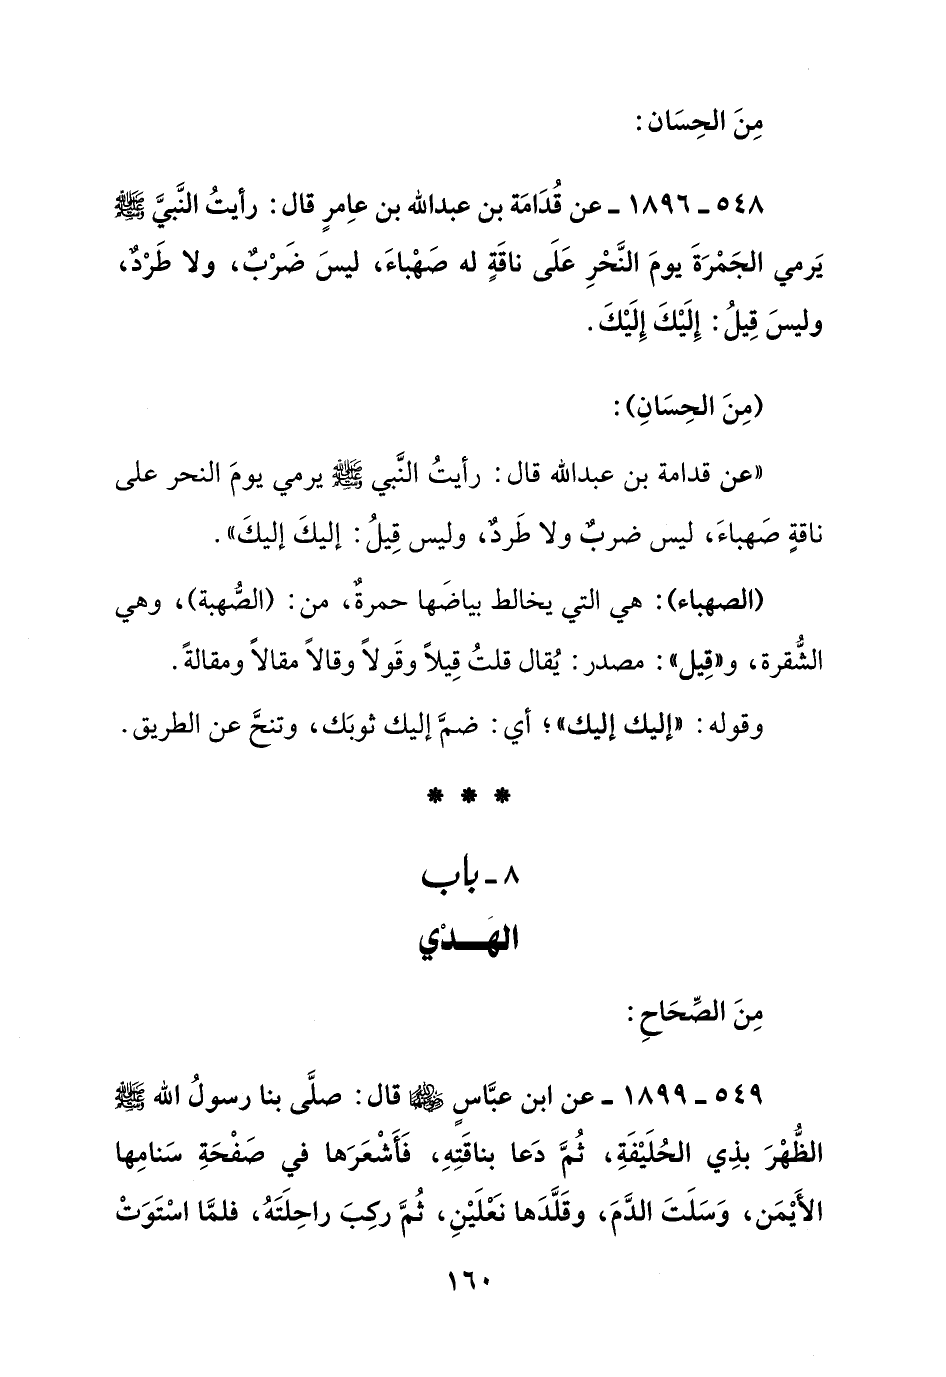 مِنَ الحِسَان :
٥٤٨ ـ ١٨٩٦ ـ عن قُدَامَة بن عبدالله بن عامرٍ قال : رأيتُ النَّبيَّ ﷺ
يَرمي الجَمْرَةَ يومَ النَّحْرِ عَلَى ناقَةٍ له صَهْباءَ، ليسَ ضَرْبٌ، ولا طَرْدٌ،
وليسَ قِيلُ : إِلَيْكَ إِلَيْكَ .
(مِنَ الحِسَانِ) :
«عن قدامة بن عبدالله قال : رأيتُ النَّبي ﷺ يرمي يومَ النحر على
ناقةٍ صَهباءَ، ليس ضربٌ ولا طَردٌ، وليس قِيلُ : إليكَ إليكَ» .
(الصهباء) : هي التي يخالط بياضَها حمرةٌ، من : (الصُّهبة)، وهي
الشُّقرة، و«قِيل» : مصدر : يُقال قلتُ قِيلاً وقَولاً وقالاً مقالاً ومقالةً .
وقوله : «إليك إليك»؛ أي : ضمَّ إليك ثوبَك، وتنحَّ عن الطريق .
* * *
٨ ـ باب
الهَـــدْي
مِنَ الصِّحَاحِ :
٥٤٩ ـ ١٨٩٩ ـ عن ابن عبَّاسٍ ﵄ قال : صلَّى بنا رسولُ الله ﷺ
الظُّهْرَ بذِي الحُلَيْفَةِ، ثُمَّ دَعا بناقَتِهِ، فَأَشْعَرَها في صَفْحَةِ سَنامِها
الأَيْمَن، وَسَلَتَ الدَّمَ، وقَلَّدَها نَعْلَيْنِ، ثُمَّ ركِبَ راحِلَتَهُ، فلمَّا اسْتَوَتْ
١٦٠